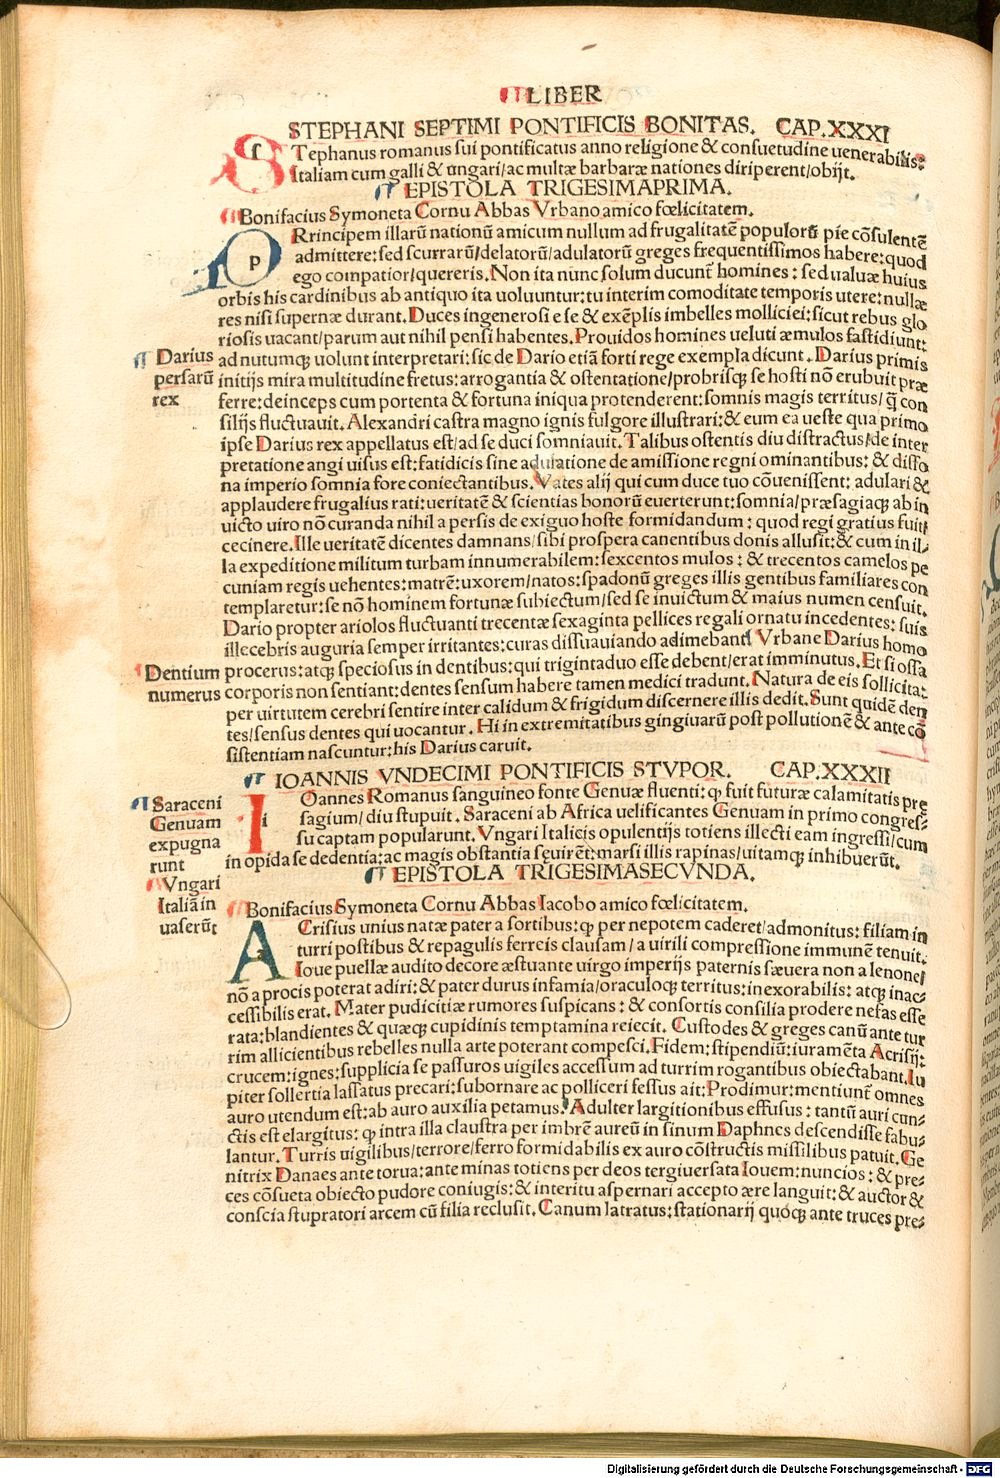 LIBER
STEPHANI SEPTIMI PONTIFICIS BONITAS. CAP.XXXI
STephanus romanus sui pontificatus anno religione & consuetudine uenerabilis:
Italiam cum galli & ungari/ac multæ barbaræ nationes diriperent/obijt.
EPISTOLA TRIGESIMAPRIMA.
Bonifacius Symoneta Cornu Abbas Vrbano amico fœlicitatem.
PRrincipem illarū nationū amicum nullum ad frugalitatē populorū pie cōsulentē
admittere: sed scurrarū/delatorū/adulatorū greges frequentissimos habere: quod
ego compatior/quereris. Non ita nunc solum ducunt homines: sed ualuæ huius
orbis his cardinibus ab antiquo ita uoluuntur: tu interim comoditate temporis utere: nullæ
res nisi supernæ durant. Duces ingenerosi ese & exēplis imbelles molliciei: sicut rebus glo
riosis uacant/parum aut nihil pensi habentes. Prouidos homines ueluti æmulos fastidiunt:
Darius
persarū
rex
ad nutumq; uolunt interpretari: sic de Dario etiā forti rege exempla dicunt. Darius primis
initijs mira multitudine fretus: arrogantia & ostentatione/probrisq; se hosti nō erubuit præ
ferre: deinceps cum portenta & fortuna iniqua protenderent: somnis magis territus/q̄ con
silijs fluctuauit. Alexandri castra magno ignis fulgore illustrari: & eum ea ueste qua primo
ipse Darius rex appellatus est/ad se duci somniauit. Talibus ostentis diu distractus/de inter
pretatione angi uisus est: fatidicis sine adulatione de amissione regni ominantibus: & disso
na imperio somnia fore coniectantibus. Vates alij qui cum duce tuo cōuenissent: adulari &
applaudere frugalius rati: ueritatē & scientias bonorū euerterunt: somnia/præsagiaq; ab in
uicto uiro nō curanda nihil a persis de exiguo hoste formidandum: quod regi gratius fuit
cecinere. Ille ueritatē dicentes damnans/sibi prospera canentibus donis allusit: & cum in il-
la expeditione militum turbam innumerabilem: sexcentos mulos: & trecentos camelos pe
cuniam regis uehentes: matrē: uxorem/natos: spadonū greges illis gentibus familiares con
templaretur: se nō hominem fortunæ subiectum/sed se inuictum & maius numen censuit.
Dario propter ariolos fluctuanti trecentæ sexaginta pellices regali ornatu incedentes: suis
illecebris auguria semper irritantes: curas dissuauiando adimebant. Vrbane Darius homo
Dentium
numerus
procerus: atq; speciosus in dentibus: qui trigintaduo esse debent/erat imminutus. Et si ossa
corporis non sentiant: dentes sensum habere tamen medici tradunt. Natura de eis sollicita:
per uirtutem cerebri sentire inter calidum & frigidum discernere illis dedit. Sunt quidē den
tes/sensus dentes qui uocantur. Hi in extremitatibus gingiuarū post pollutionē & ante cō
sistentiam nascuntur: his Darius caruit.
IOANNIS VNDECIMI PONTIFICIS STVPOR. CAP.XXXII
Saraceni
Genuam
expugna
runt
Vngari
Italiā in
uaserūt
IOannes Romanus sanguineo fonte Genuæ fluenti: q; fuit futuræ calamitatis pre
sagium/diu stupuit. Saraceni ab Africa uelificantes Genuam in primo congres-
su captam popularunt. Vngari Italicis opulentijs totiens illecti eam ingressi/cum
in opida se dedentia: ac magis obstantia sęuirēt: marsi illis rapinas/uitamq; inhibuerūt.
EPISTOLA TRIGESIMASECVNDA.
Bonifacius Symoneta Cornu Abbas Iacobo amico fœlicitatem.
ACrisius unius natæ pater a sortibus: q; per nepotem caderet/admonitus: filiam in
turri postibus & repagulis ferreis clausam/a uirili compressione immunē tenuit.
Ioue puellæ audito decore æstuante uirgo imperijs paternis sæuera non a lenone/
nō a procis poterat adiri: & pater durus infamia/oraculoq; territus: inexorabilis: atq; inac-
cessibilis erat. Mater pudicitiæ rumores suspicans: & consortis consilia prodere nefas esse
rata: blandientes & quæq; cupidinis temptamina reiecit. Custodes & greges canū ante tur
rim allicientibus rebelles nulla arte poterant compesci. Fidem: stipendiū: iuramēta Acrisij:
crucem: ignes: supplicia se passuros uigiles accessum ad turrim rogantibus obiectabant. Iu
piter sollertia lassatus precari: subornare ac polliceri fessus ait: Prodimur: mentiunt omnes
auro utendum est: ab auro auxilia petamus. Adulter largitionibus effusus: tantū auri cun-
ctis est elargitus: q; intra illa claustra per imbrē aureū in sinum Daphnes descendisse fabu-
lantur. Turris uigilibus/terrore/ferro formidabilis ex auro cōstructis missilibus patuit. Ge
nitrix Danaes ante torua: ante minas totiens per deos tergiuersata Iouem: nuncios: & pre-
ces cōsueta obiecto pudore coniugis: & interitu aspernari accepto ære languit: & auctor &
conscia stupratori arcem cū filia reclusit. Canum latratus: stationarij quoq; ante truces pre-
Digitalisierung gefördert durch die Deutsche Forschungsgemeinschaft - DFG